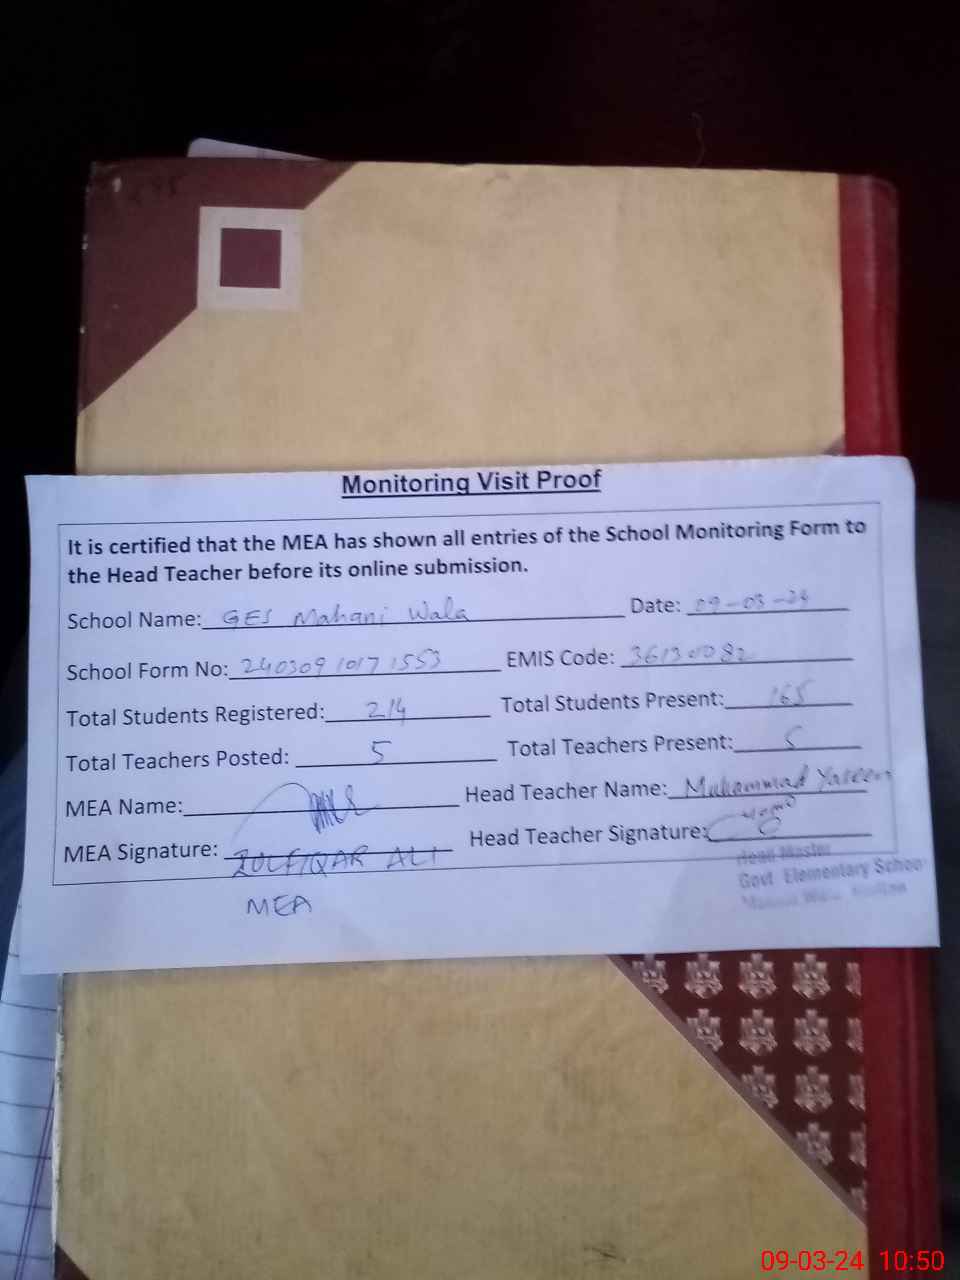 Monitoring Visit Proof
It is certified that the MEA has shown all entries of the School Monitoring Form to
the Head Teacher before its online submission.
School Name: GES Mahani Wala Date: 09-03-24
School Form No: 240309 1017 1553 EMIS Code:
Total Students Registered: 214 Total Students Present: 165
Total Teachers Posted: 5 Total Teachers Present: 5
MEA Name: Head Teacher Name: Muhammad Yaseen
MEA Signature: ZULFIQAR ALI Head Teacher Signature:
MEA
Head Master
Govt Elementary School
09-03-24 10:50